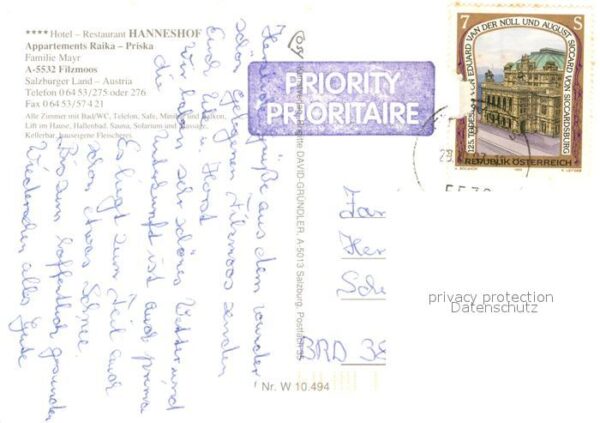 **** Hotel - Restaurant HANNESHOF
Appartements Raika – Priska
Familie Mayr
A-5532 Filzmoos
Salzburger Land – Austria
Telefon 0 64 53/275 oder 276
Fax 0 64 53/57 4 21
Alle Zimmer mit Bad/WC, Telefon, Safe, Balkon,
Lift im Hause, Hallenbad, Sauna, Solarium und Massage,
Kellerbar, hauseigene Fleischerei.
PRIORITY
PRIORITAIRE
7 S
125. TODESTAG VON EDUARD VAN DER NÜLL UND AUGUST SICARD VON SICARDSBURG
REPUBLIK ÖSTERREICH
5532
DAVID-GRÜNDLER, A-5013 Salzburg, Postfach
Nr. W 10.494
grüße aus dem wunder
schön gelegenen Filzmoos senden
Euch Horst
Wir haben sehr schönes Wetter und
die Unterkunft ist auch prima
Es liegt zum Teil auch
schon etwas Schnee.
Bis zum hoffentlich gesunden
Wiedersehen alles Gute
BRD 38
privacy protection
Datenschutz